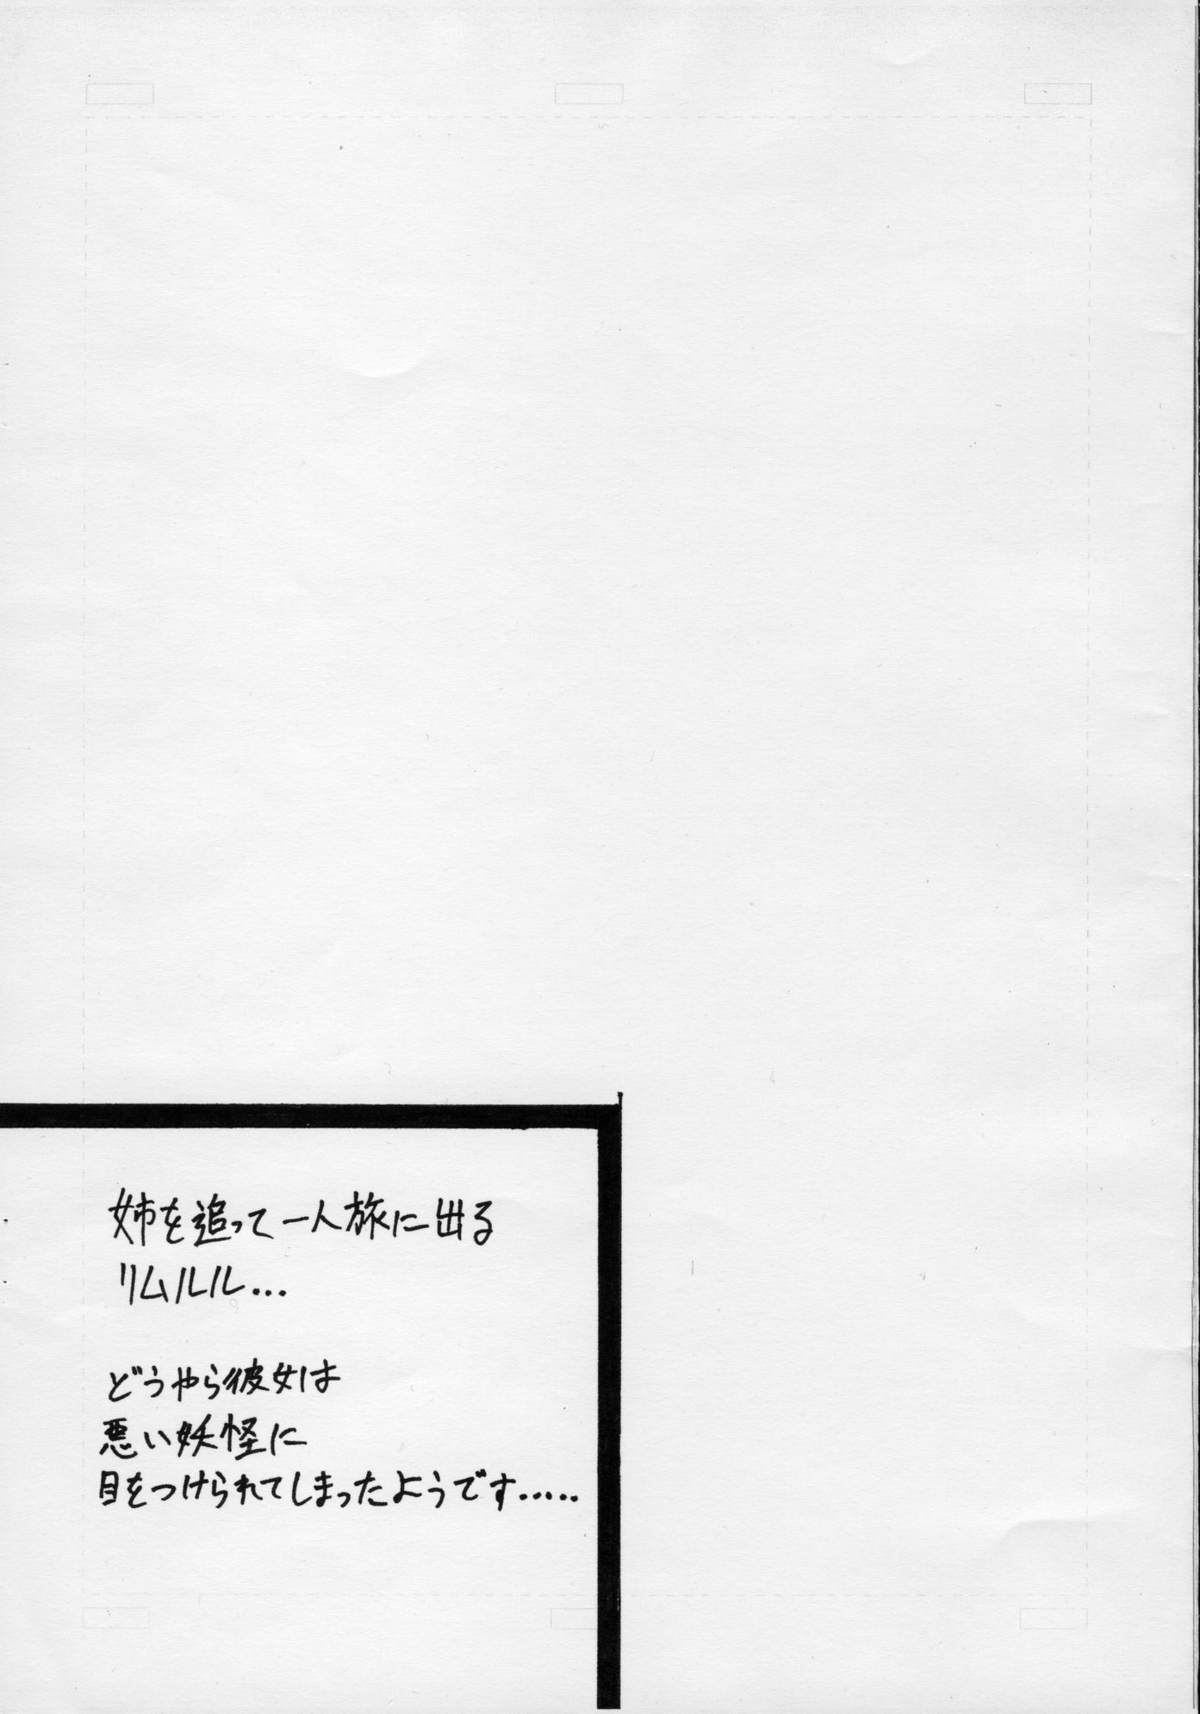 姉を追って一人旅に出る
リムルル...
どうやら彼女は
悪い妖怪に
目をつけられてしまったようです.....